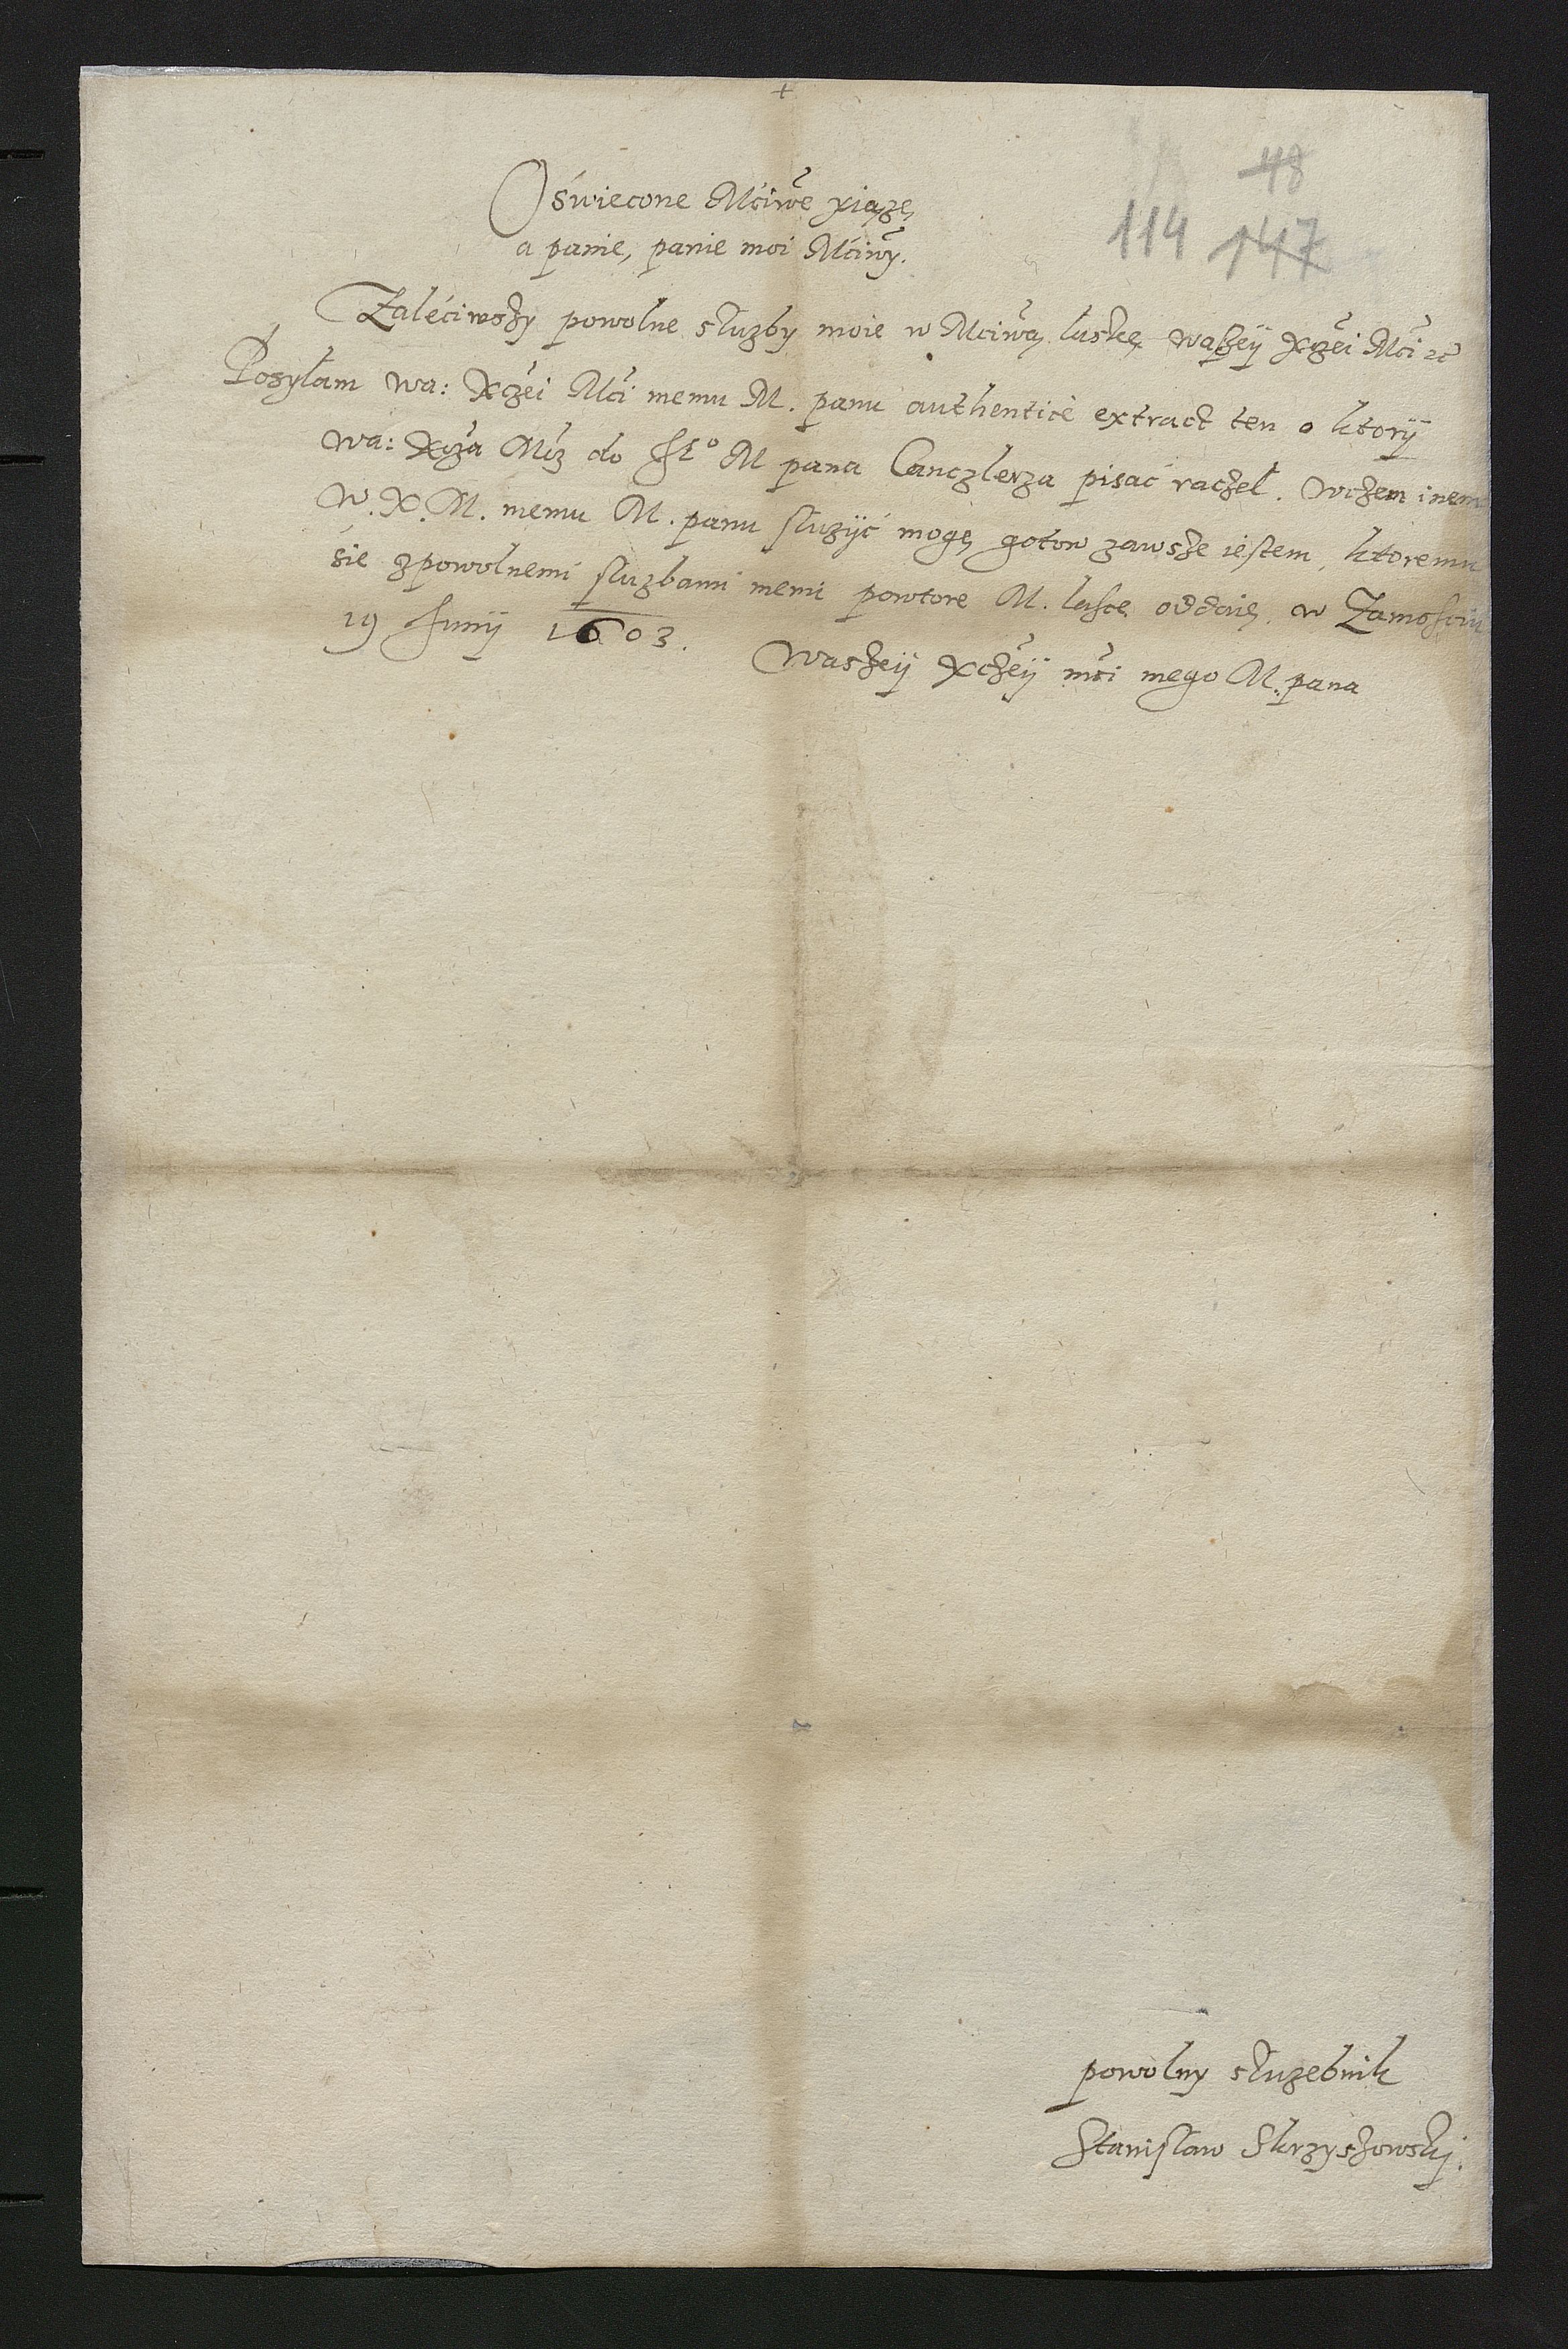 +
48
114 147
Oświecone Mciwe xiążę
a panie, panie moi Mciwy.
Zaleciwszy powolne służby moie w Mciwą laskę waszeÿ Xżei Mci
Posyłam wa: Xżei Mci memu M. panu authentice extract ten o ktorÿ
wa: Xża Mcz do M pana Canczlerza pisać raczeł. Wczem inem
W. X. M. memu M. panu służÿć mogę gotow zawsze iestem, ktoremu
sie zpowolnemi służbami memi powtore M. lasce oddaię. w Zamosciu
19 Junÿ 1603. Waszeÿ Xczeÿ mci mego M. pana
powolny służebnik
Stanisław Skrzyszowskj.